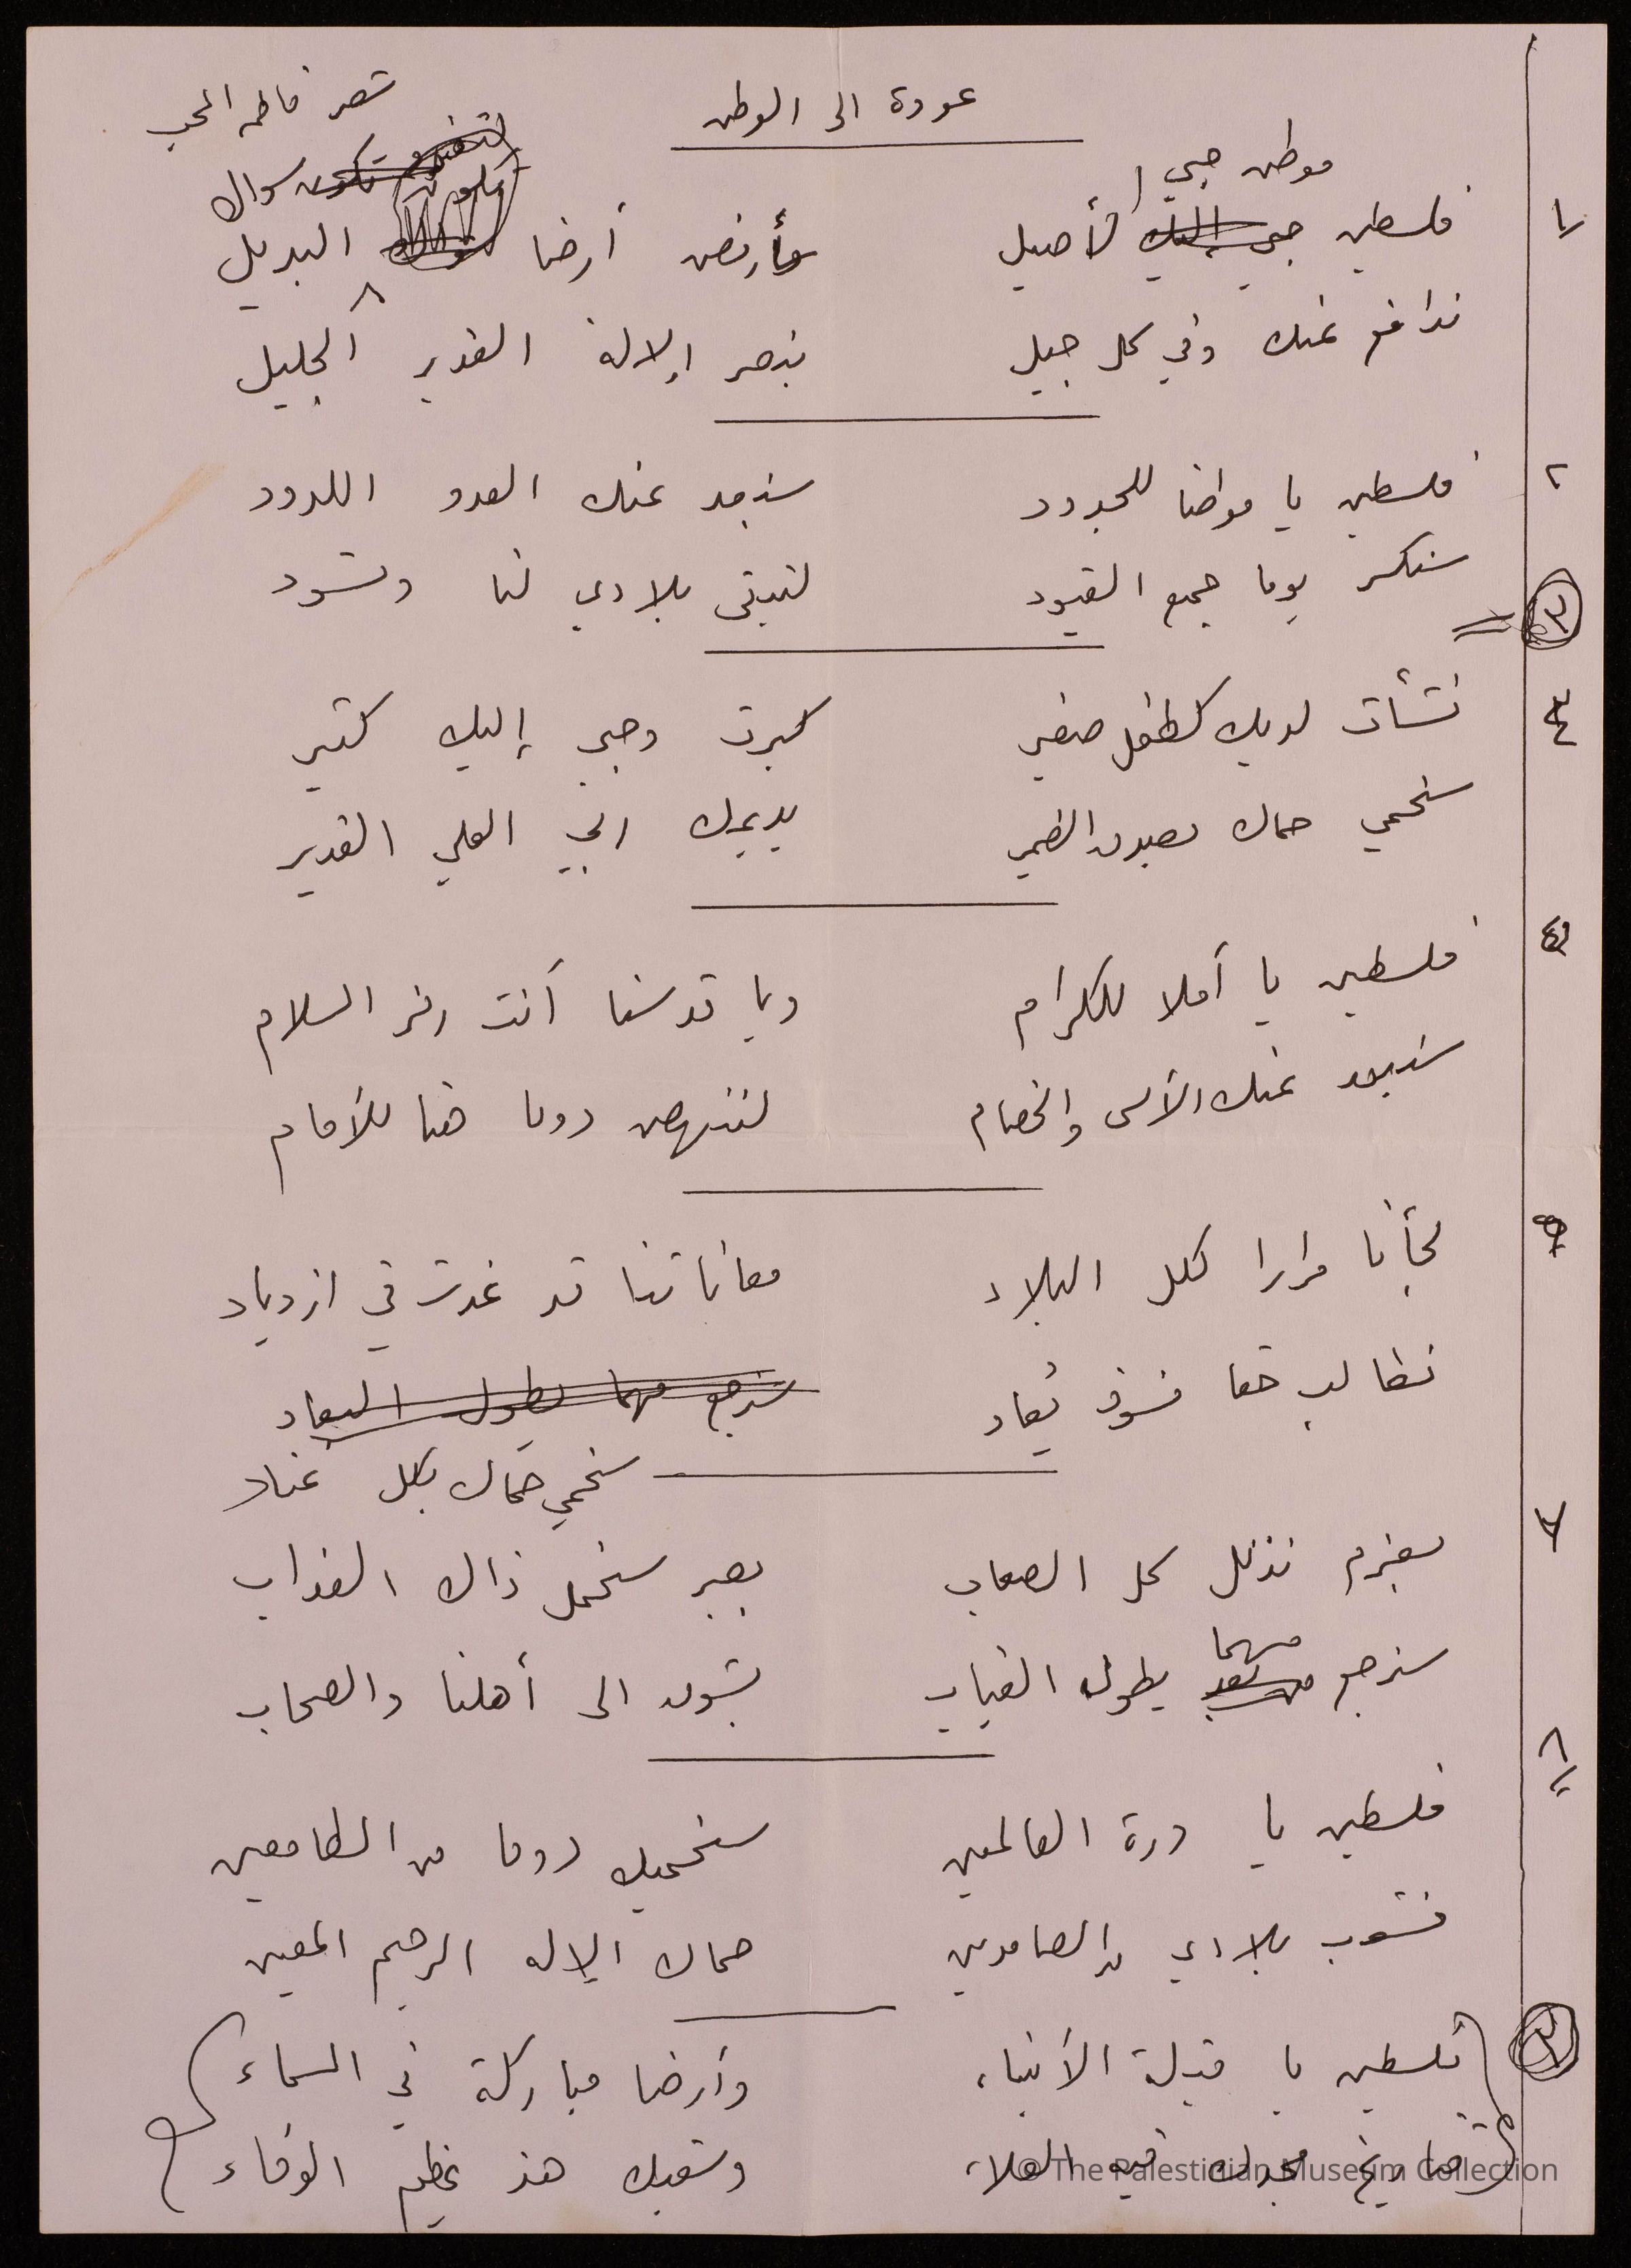 عودة الى الوطن
شعر فاطمه المحب
موطن حبي
سواك
١ فلسطين حبي الأصيل وأرفض أرضا البديل
ندافع عنك وفي كل جيل بنصر الإلاه القدير الجليل
٢ فلسطين يا موطنا للجدود سنبعد عنك العدو اللدود
سنكسر يوما جميع القيود لتبقى بلادي لنا وتسود
٣
٤ نشأت لديك كطفل صغير كبرت وحبي إليك كثير
سنحمي حماك بصدق الضمير يديمك ربي العلي القدير
٥ فلسطين يا أملا للكرام ويا قدسنا أنت رمز السلام
سنبعد عنك الأسى والخصام لننهض دوما هنا للأمام
٦ لجأنا مرارا لكل البلاد معاناتنا قد غدت في ازدياد
نطالب حقا فسوف يُعاد سنرجع مهما يطول البعاد
سنحمي حماك بكل عناد
٧ بعزم نذلل كل الصعاب بصبر سنحمل ذاك العذاب
مهما
سنرجع من بعد يطول الغياب بشوق الى أهلنا والصحاب
٨ فلسطين يا درة العالمين سنحميك دوما من الطامعين
فشعب بلادي من الصامدين حماك الإله الرحيم المعين
٣ فلسطين يا قبلة الأنبياء وأرضا مباركة في السماء
تاريخ مجدك فيه العلاء وشعبك هذا عظيم الوفاء
© The Palestinian Museum Collection